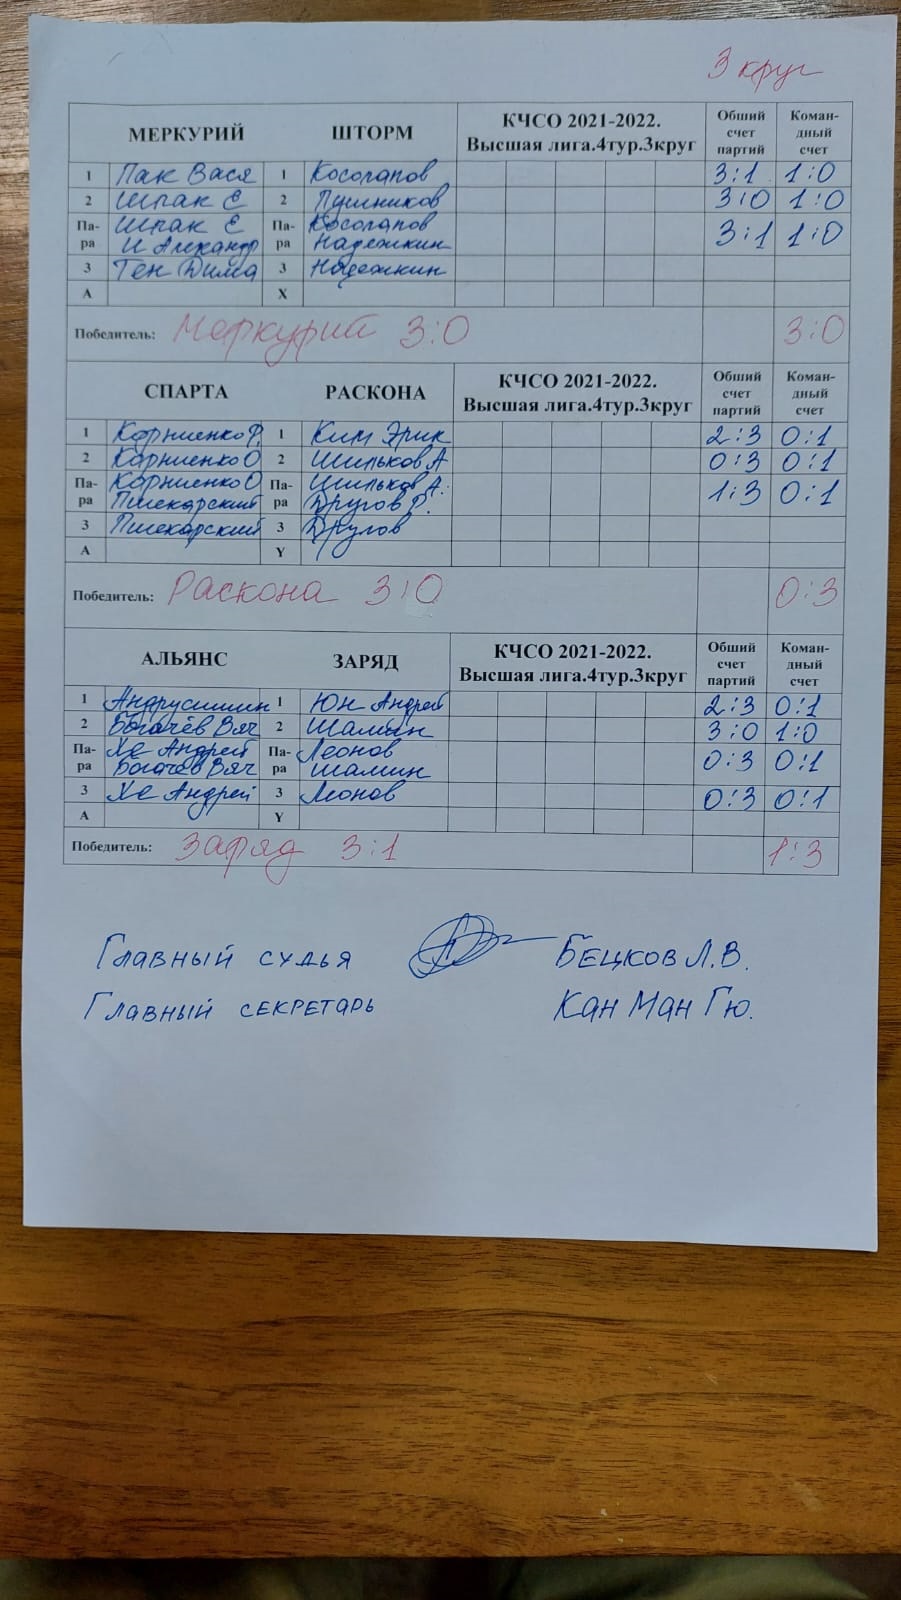 3 круг
МЕРКУРИЙ ШТОРМ КЧСО 2021-2022. Высшая лига.4тур.3круг Общий счет партий Коман-дный счет
1 Пак Вася 1 Косолапов 3:1 1:0
2 Шпак Е 2 Пушников 3:0 1:0
Па-ра Шпак Е Па-ра Косолапов 3:1 1:0
И Александр Надежкин
3 Тен Дима 3 Надежкин
А Х
Победитель: Меркурий 3:0 3:0
СПАРТА РАСКОНА КЧСО 2021-2022. Высшая лига.4тур.3круг Общий счет партий Коман-дный счет
1 Корниенко Р. 1 Ким Эрик 2:3 0:1
2 Корниенко О 2 Шильков А 0:3 0:1
Па-ра Корниенко О Па-ра Шильков А. 1:3 0:1
Пшекарский Другов Р.
3 Пшекарский 3 Другов
А Y
Победитель: Раскона 3:0 0:3
АЛЬЯНС ЗАРЯД КЧСО 2021-2022. Высшая лига.4тур.3круг Общий счет партий Коман-дный счет
1 Андрусишин 1 Юн Андрей 2:3 0:1
2 Богачёв Вяч 2 Шамин 3:0 1:0
Па-ра Хе Андрей Па-ра Леонов 0:3 0:1
Богачёв Вяч Шамин
3 Хе Андрей 3 Леонов 0:3 0:1
А Y
Победитель: Заряд 3:1 1:3
Главный судья Бецков Л.В.
Главный секретарь Кан Ман Гю.